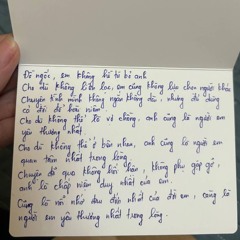 Đồ ngốc, em không hề từ bỏ anh
Cho dù không liên lạc, em cũng không lựa chọn người khác
Chuyện tình mình không ngắn không dài, nhưng đủ dùng
cả đời để hoài niệm
Cho dù không thể là vợ chồng, anh cũng là người em
yêu thương nhất.
Cho dù không thể ở bên nhau, anh cũng là người em
quan tâm nhất trong lòng.
Chuyện đã qua không hối hận, không phụ gặp gỡ,
anh là chấp niệm duy nhất của em.
Cũng là vết nhớ đau đớn nhất của đời em, cũng là
người em yêu thương nhất trong lòng.